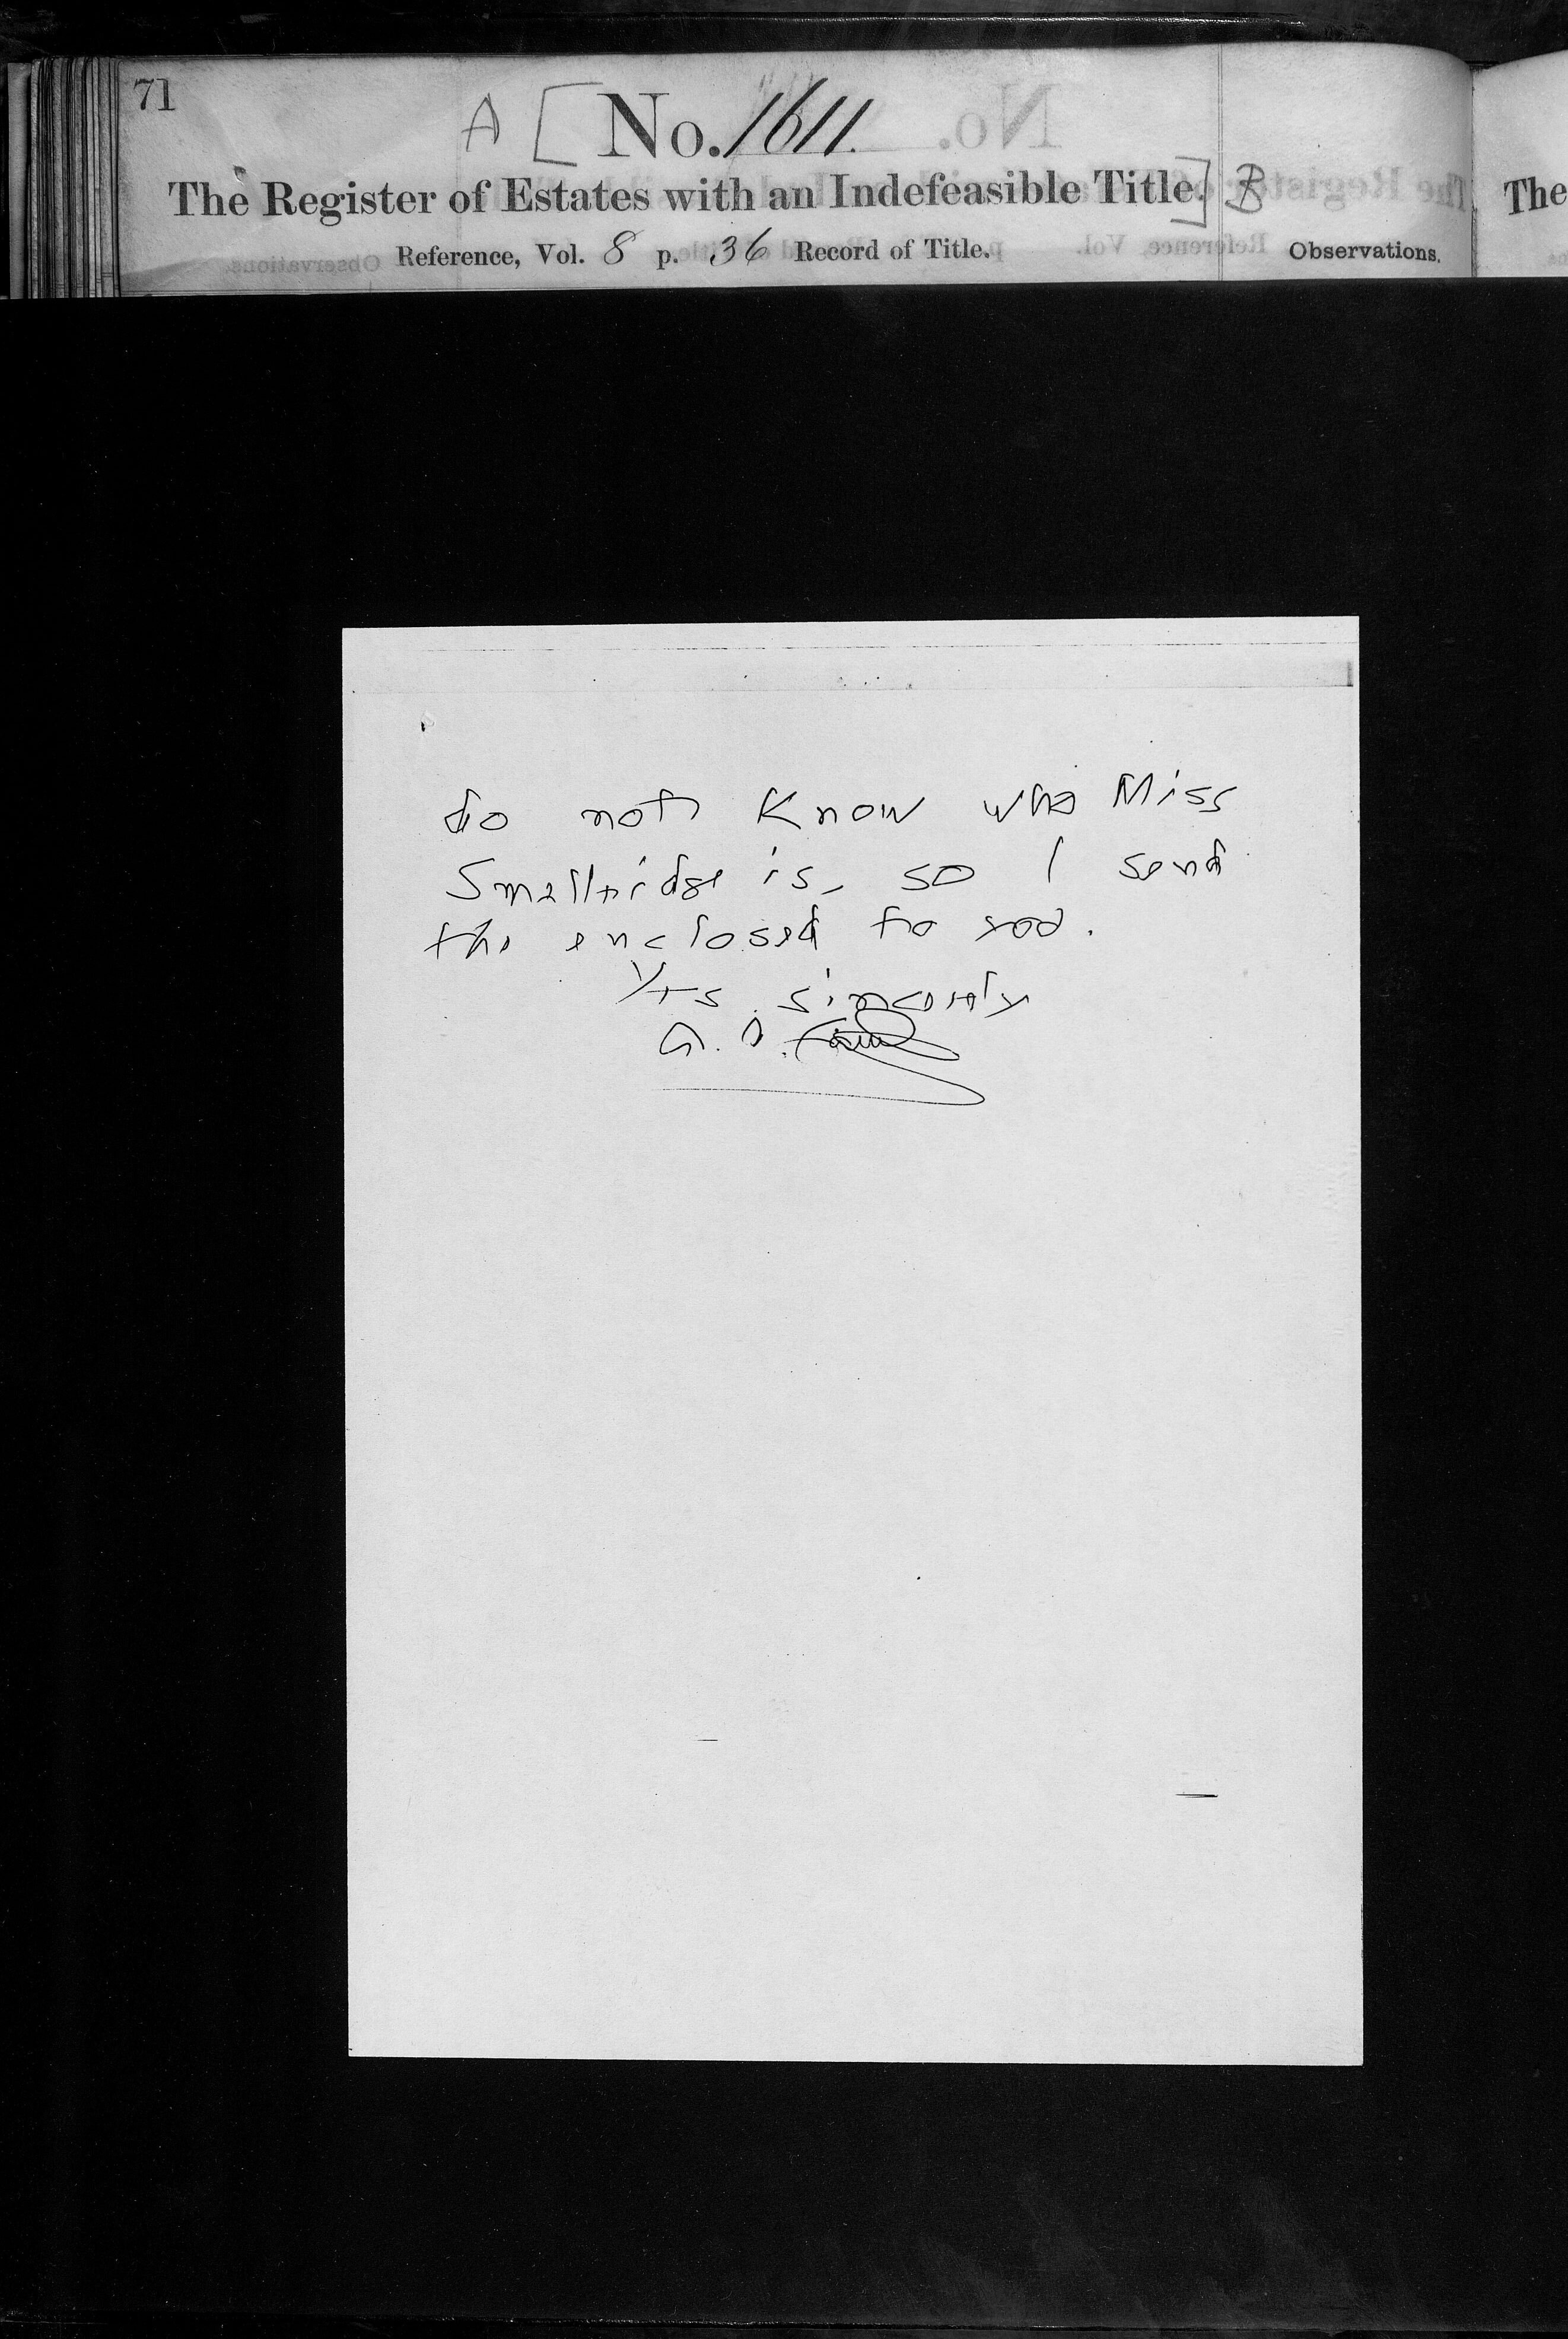 71
A [ No. 1611.
The Register of Estates with an Indefeasible Title. ] B
The
Reference, Vol. 8 p. 36 Record of Title.
Observations.
do not know who Miss
Smallridge is, so I send
the enclosed to you.
Yrs sincerely